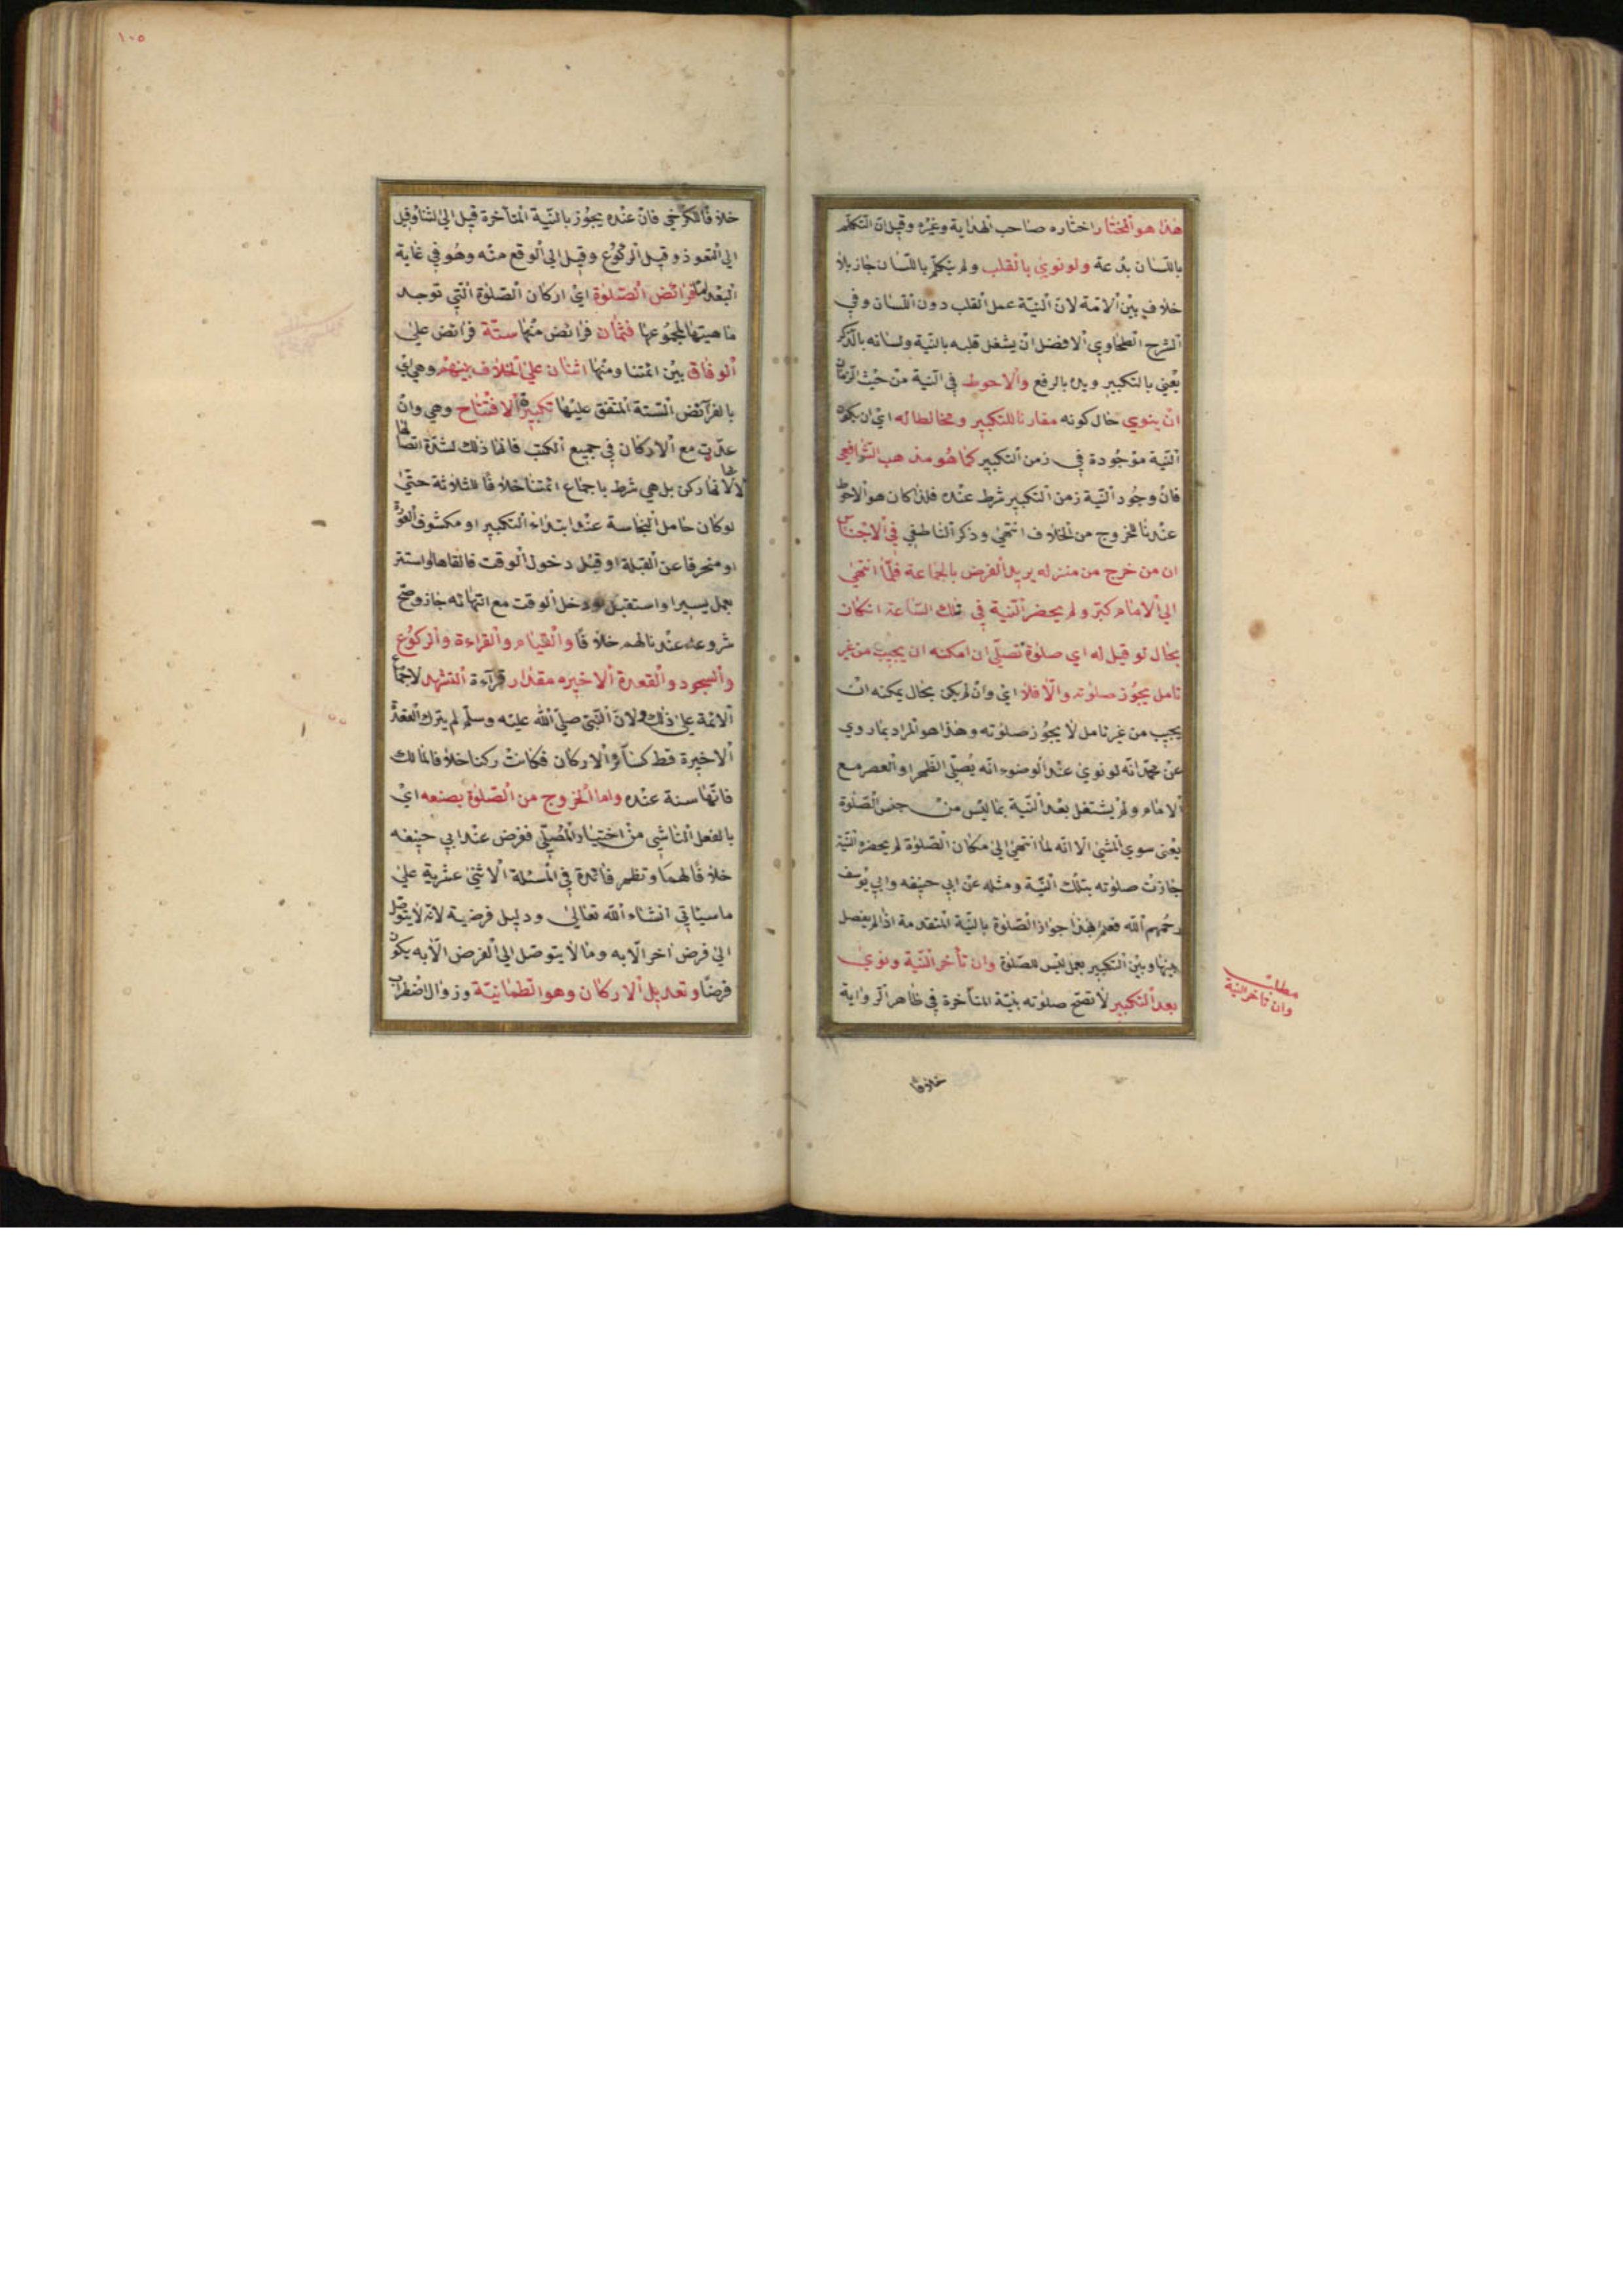 هذا هو المختار اختاره صاحب الهداية وغيره وقيل ان التكلم
باللسان بدعة ولو نوي بالقلب ولم يتكلم باللسان جاز بلا
خلاف بين الامة لان النية عمل القلب دون اللسان وفي
الشرح الطحاوي الافضل ان يشغل قلبه بالنية ولسانه بالذكر
يعني بالتكبير ويده بالرفع والاحوط في النية من حيث الزمان
ان ينوي حال كونه مقارنا للتكبير ومخالطا له اي ان يكون
النية موجودة في زمن التكبير كما هو مذهب الشافعي
فان وجود النية زمن التكبير شرط عنده فلذا كان هو الاحوط
عندنا للخروج من الخلاف انتهي وذكر الناطفي في الاجناس
ان من خرج من منزله يريد الفرض بالجماعة فلما انتهي
الي الامام كبر ولم يحضر النية في تلك الساعة ان كان
بحال لو قيل له اي صلوة تصلي ان امكنه ان يجيب من غير
تامل يجوز صلوته والا فلا اي وان لم يكن بحال يمكنه ان
يجيب من غير تامل لا يجوز صلوته وهذا هو المراد بما روي
عن محمد انه لو نوي عند الوضوء انه يصلي الظهر او العصر مع
الامام ولم يشتغل بعد النية بما ليس من جنس الصلوة
يعني سوي المشي الا انه لما انتهي الي مكان الصلوة لم يحضره النية
جازت صلوته بتلك النية ومثله عن ابي حنيفه وابي يوسف
رحمهم الله فعلم بهذا جواز الصلوة بالنية المتقدمة اذا لم يفصل
بينها وبين التكبير بعمل ليس للصلوة وان تأخر النية ونوي
بعد التكبير لا تصح صلوته بنية المتأخرة في ظاهر الرواية
خلافا
مطلب
وان تأخر النية
١٠٥
خلافا للكرخي فان عنده يجوز بالنية المتأخرة قيل الي الثنا وقيل
الي التعوذ وقيل الركوع وقيل الي الرفع منه وهو في غاية
البعد اما فرائض الصلوة اي اركان الصلوة التي توجد
ماهيتها لمجموعها فثمان فرائض منها ستة فرائض علي
الوفاق بين ائمتنا ومنها اثنان علي الخلاف بينهم وهي اي
بالفرائض الستة المتفق عليها تكبيرة الافتتاح وهي وان
عدت مع الاركان في جميع الكتب فانما ذلك لشدة اتصالها
لا لانها ركن بل هي شرط باجماع ائمتنا خلافا للثلاثة حتي
لو كان حامل النجاسة عند ابتداء التكبير او مكشوف العورة
او منحرفا عن القبلة او قبل دخول الوقت فالقاها واستتر
بعمل يسير او استقبل ودخل الوقت مع انتهائه جاز وصح
شروعه عندنا لهم خلافا والقيام والقراءة والركوع
والسجود والقعدة الاخيره مقدار قراءة التشهد لاجتماع
الائمة علي ذلك ولان النبي صلي الله عليه وسلم لم يترك القعدة
الاخيرة قط كسائر الاركان فكانت ركنا خلافا لمالك
فانها سنة عنده واما الخروج من الصلوة بصنعه اي
بالفعل الناشي من اختيار المصلي ففرض عند ابي حنيفه
خلافا لهما وتظهر فائدة في المسئلة الاثني عشرية علي
ما سياتي انشاء الله تعالي ودليل فرضية لانه لا يتوصل
الي فرض اخر الا به وما لا يتوصل الي الفرض الا به يكون
فرضا وتعديل الاركان وهو الطمانينة وزوال اضطراب